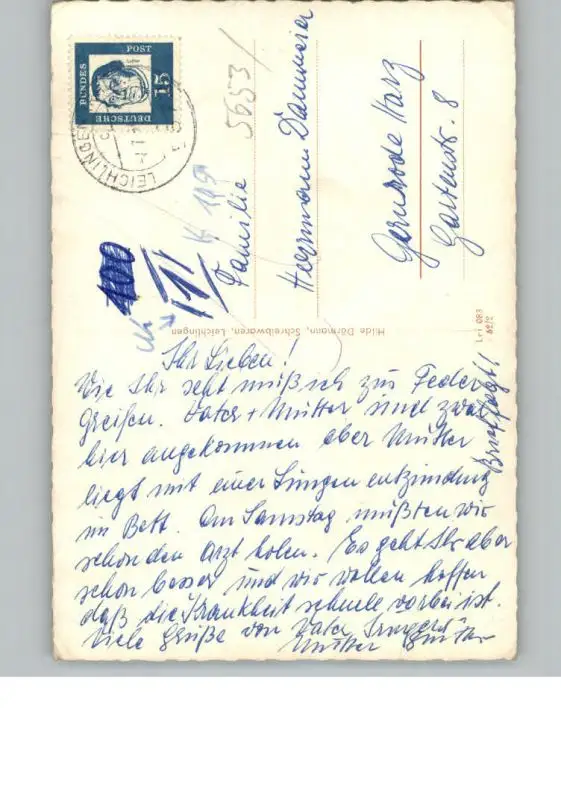 DEUTSCHE
BUNDES
POST
15
LEICHLINGEN
5653
100
111
Familie
Herrmann Dannmeier
Gernrode Harz
Gartenstr. 8
Hilde Dörmann, Schreibwaren, Leichlingen
Lei 083
62/2
Ihr Lieben!
Wie Ihr seht muß ich zur Feder
greifen. Vater + Mutter sind zwar
hier angekommen aber Mutter
liegt mit einer Lungenentzündung
im Bett. Am Samstag mußten wir
schon den Arzt holen. Es geht Ihr aber
schon besser und wir wollen hoffen
daß die Krankheit schnell vorbei ist.
Viele Grüße von Vater Irmgard
Mutter Günther
Brief folgt!